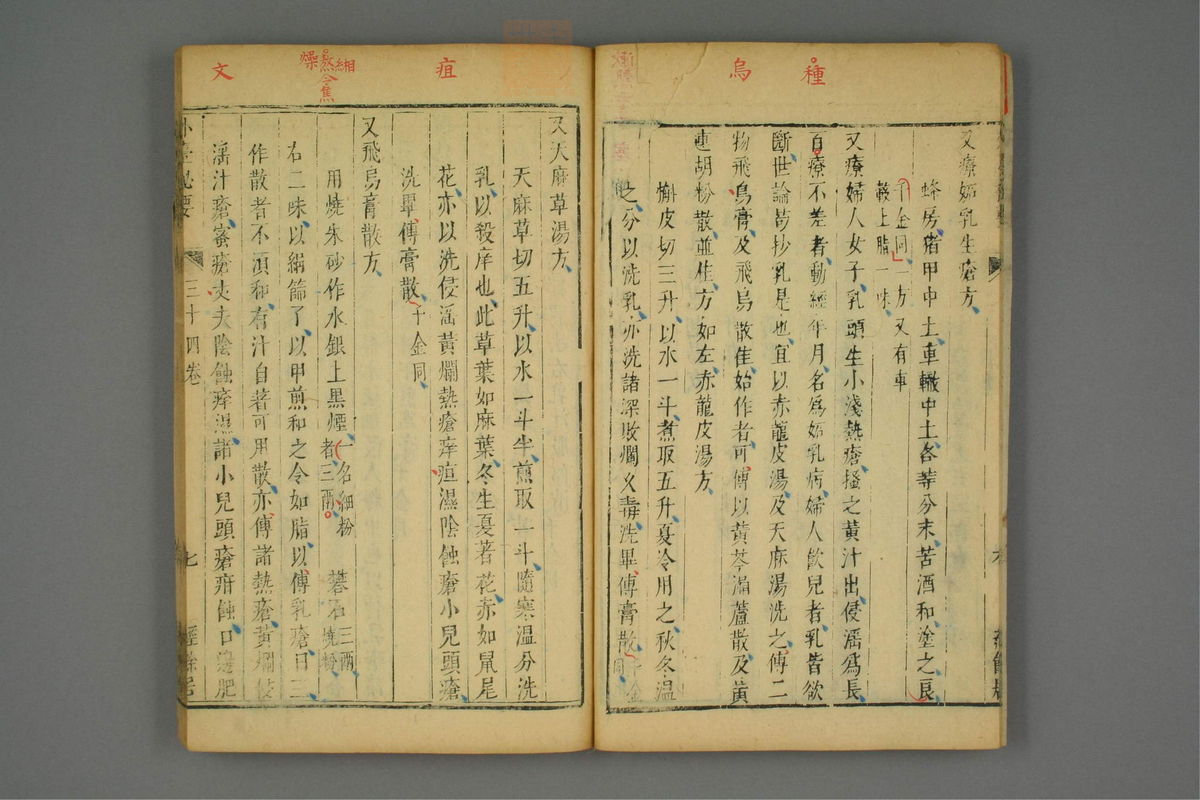 種
烏
又療妬乳生瘡方
蜂房豬甲中土車轍中土各等分末苦酒和塗之良
千金同一方又有車
轂上脂一味
又療婦人女子乳頭生小淺熱瘡搔之黃汁出侵淫爲長
百療不差者動經年月名爲妬乳病婦人飲兒者乳皆欲
斷世論苟抄乳是也宜以赤龍皮湯及天麻湯洗之傅二
物飛烏膏及飛烏散佳始作者可傅以黃芩漏蘆散及黃
連胡粉散並佳方如左赤龍皮湯方
槲皮切三升以水一斗煮取五升夏冷用之秋冬溫
之分以洗乳亦洗諸深敗爛久毒洗畢傅膏散千金
同
疽
緗
熬
煠
焦
文
又天麻草湯方
天麻草切五升以水一斗半煎取一斗隨寒溫分洗
乳以殺痒也此草葉如麻葉冬生夏著花赤如鼠尾
花亦以洗侵淫黃爛熱瘡痒疽濕陰蝕瘡小兒頭瘡
洗畢傅膏散千金同
又飛烏膏散方
用燒朱砂作水銀上黑煙一名細粉
者三兩 礬石三兩
燒粉
右二味以絹篩了以甲煎和之令如脂以傅乳瘡日三
作散者不須和有汁自著可用散亦傅諸熱瘡黃爛侵
淫汁瘡蜜瘡丈夫陰蝕痒濕諸小兒頭瘡疳蝕口邊肥
外臺秘要
三十四卷
七
經餘居